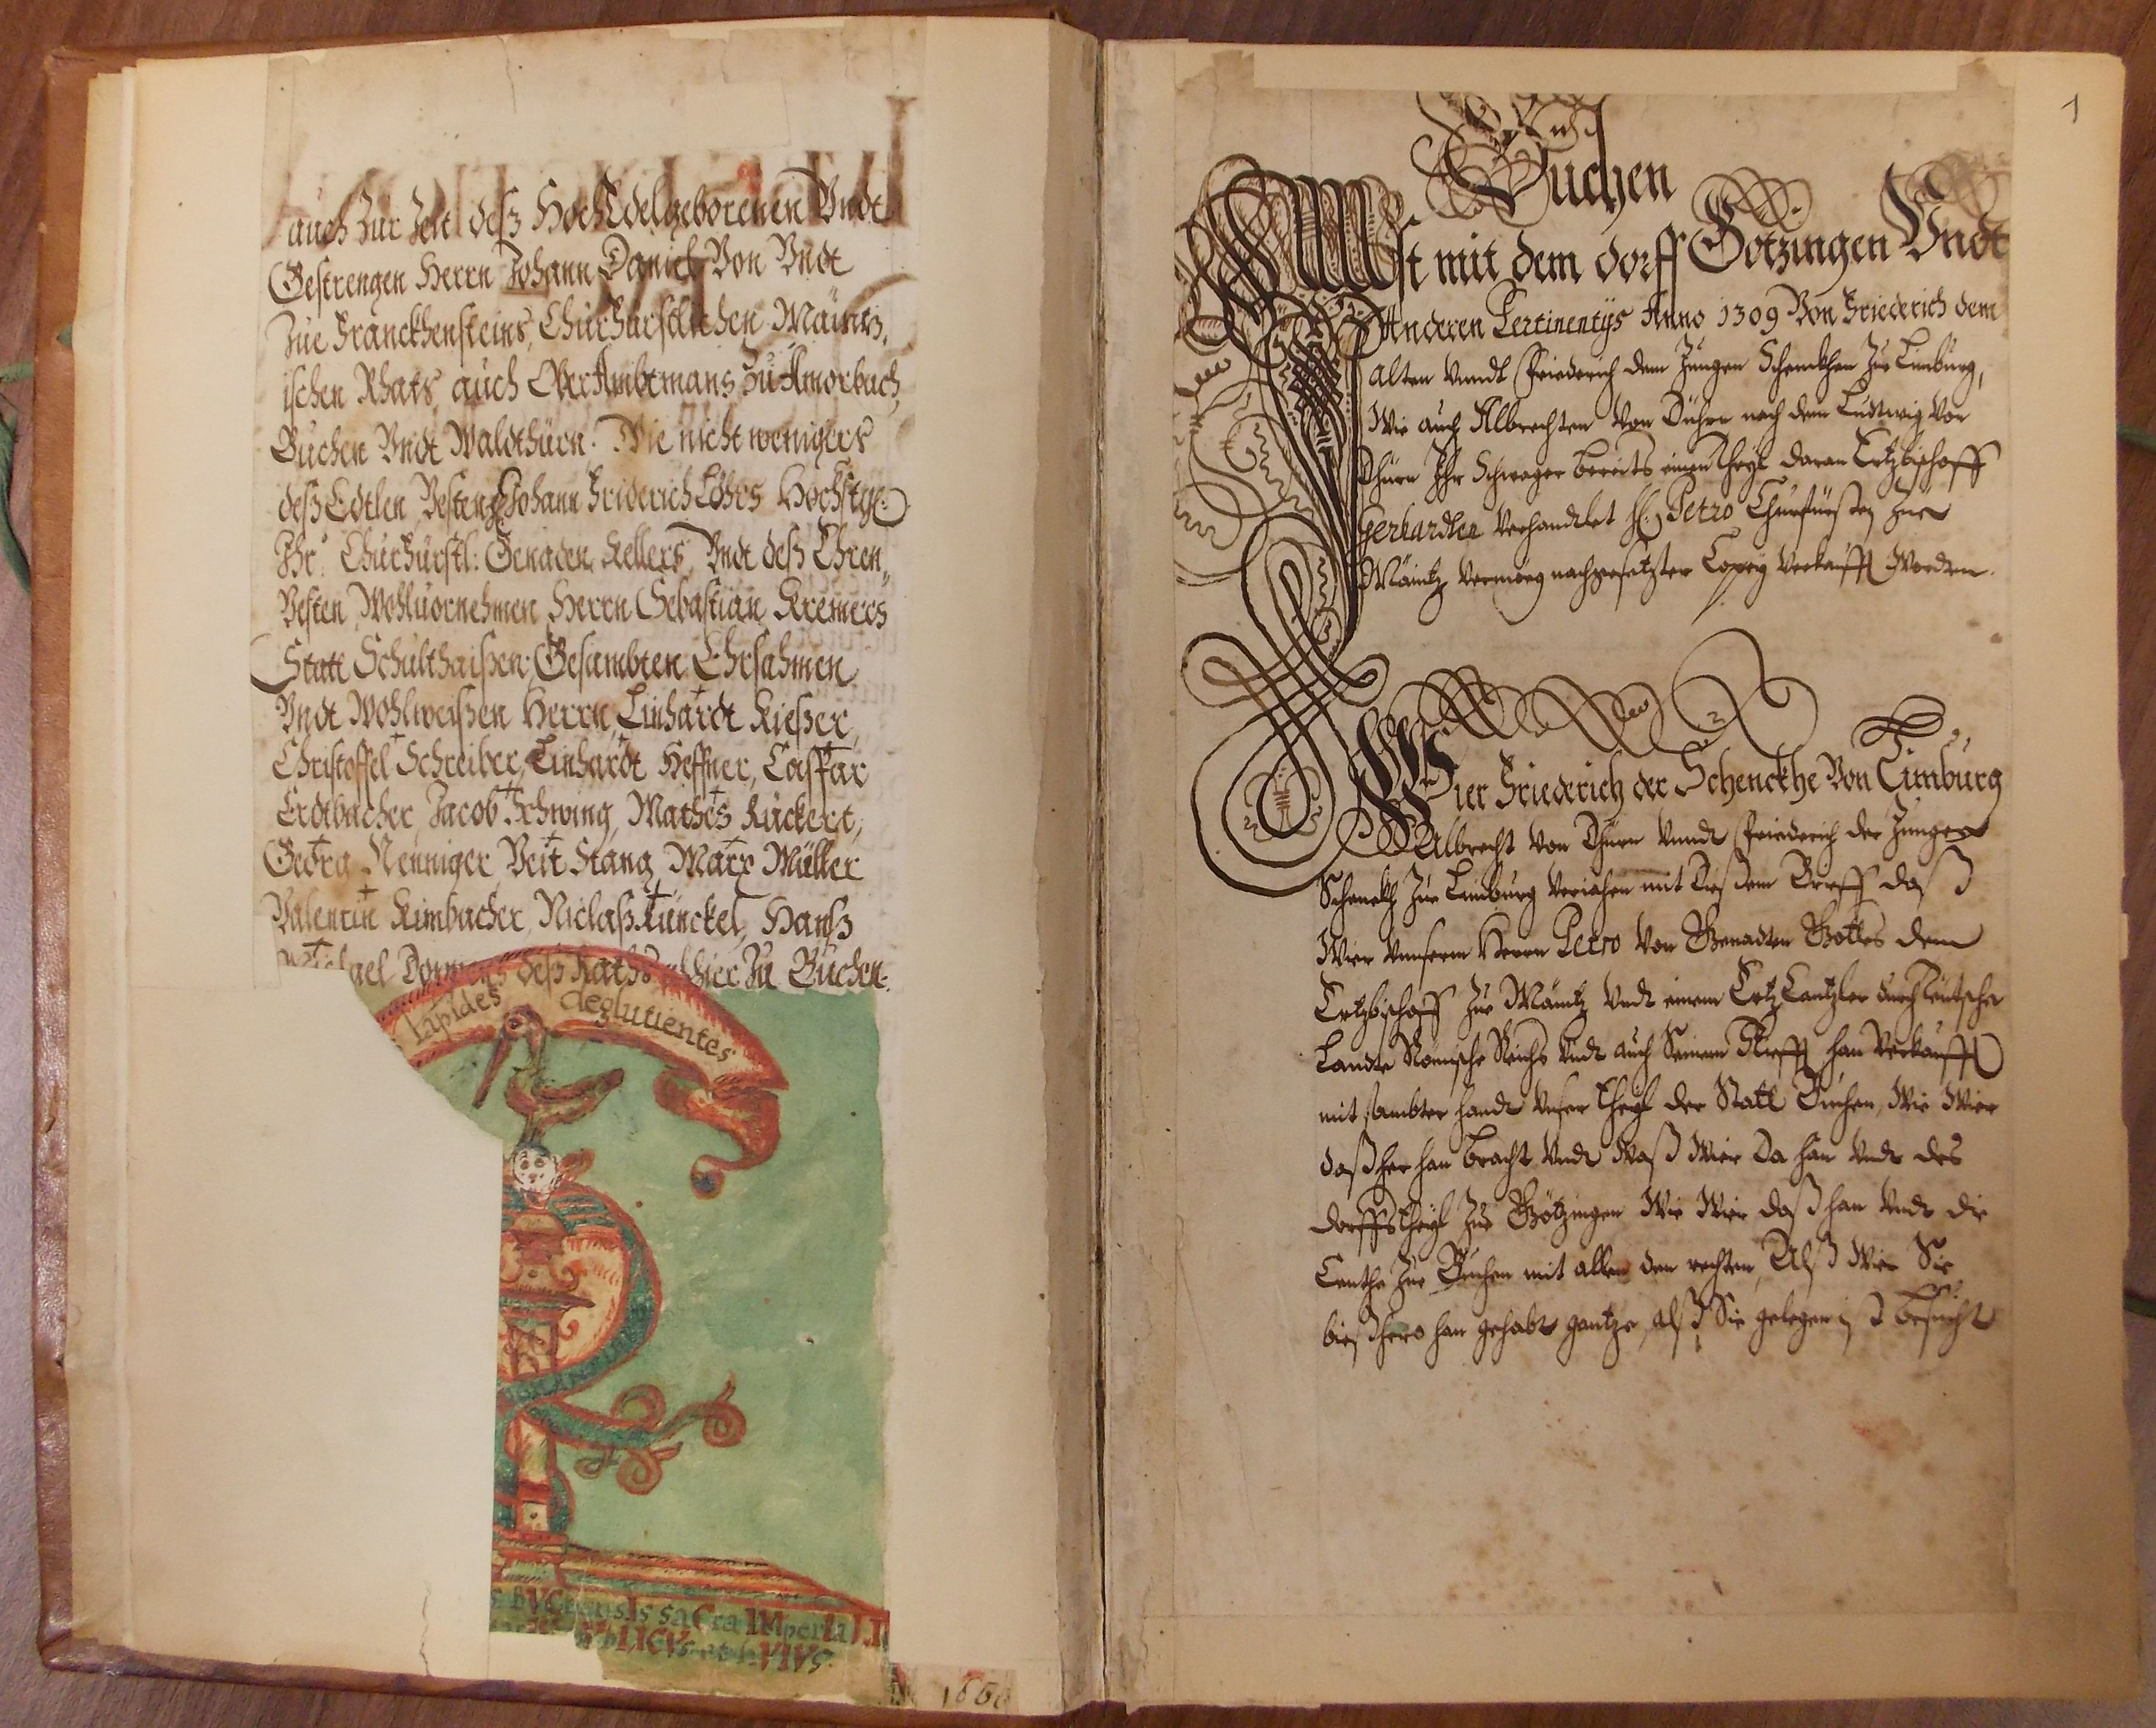 auch Zur Zeit deß HochEdelgeborenen Vndt
Gestrengen Herrn Johann Daniel Von Vndt
Zue Franckhensteins, Churfürstlichen Mäintz,
ischen Rhats, auch OberAmbtmans Zu Amorbach,
Buchen Vndt Waldthürn. Wie nicht wenigers
deß Edtlen Vesten Johann Friderich Löhrs Höchstge.
Ihr. Churfürstl: Genaden Kellers, Vndt deß Ehren,
Vesten, Wohluornehmen Herrn Sebastian Kremers
Statt Schulthaißen, Gesambten Ehrsahmen
Vndt Wohlweißen Herrn, Linhardt Kießer,
Christoffel Schreiber, Linhardt Heffner, Caspar
Erdtbacher, Jacob Schwing, Mathes Rückert,
Georg Nenniger, Veit Stang, Marx Müller
Valentin Kimbacher, Niclaß Künckel, Hanß
deß Raths alhier Zu Buchen.
lapides deglutientes
bVChensIs saCra IMperIaLI
bLICVs VIVs.
1
Buchen
Ist mit dem dorff Götzingen Vndt
Anderen Pertinentÿs Anno 1309 Von Friederich dem
alten Vnndt Friederich dem Jungen Schenckhen Zue Limburg,
Wie auch Albrechten Von Dührn nach dem Ludtwig Von
Dhürn Ihr Schwager bereits einen theyl daran Ertzbischoff
Gerhardten Verhandtlet H. Petro Churfürsten Zue
Mäintz Vermög nachgesetzter Copeÿ Verkaufft Worden.
Wier Friederich der Schenckhe Von Limburg
Albrecht Von Dhürn Vnndt Friederich der Jungen
Schenckh Zue Limburg Veriehen mit Dießem Brieff daß
Wier Vnnserm Herrn Petro Von Genadten Gottes dem
Ertzbischoff Zue Mäintz Vndt einem ErtzCantzler durch teutsche
Landte Römische Reichs Vndt auch Seinem Stifft han Verkaufft
mit sambter handt Vnser theyl der Statt Buchen, Wie Wier
daß her han bracht Vndt Waß Wier Da han Vndt des
dorffs theyl Zue Götzingen Wie Wier daß han Vndt die
Centhe Zue Buchen mit allen den rechten, Alß Wier Sie
bießhero han gehabt gantze, alß Sie gelegen ist besucht